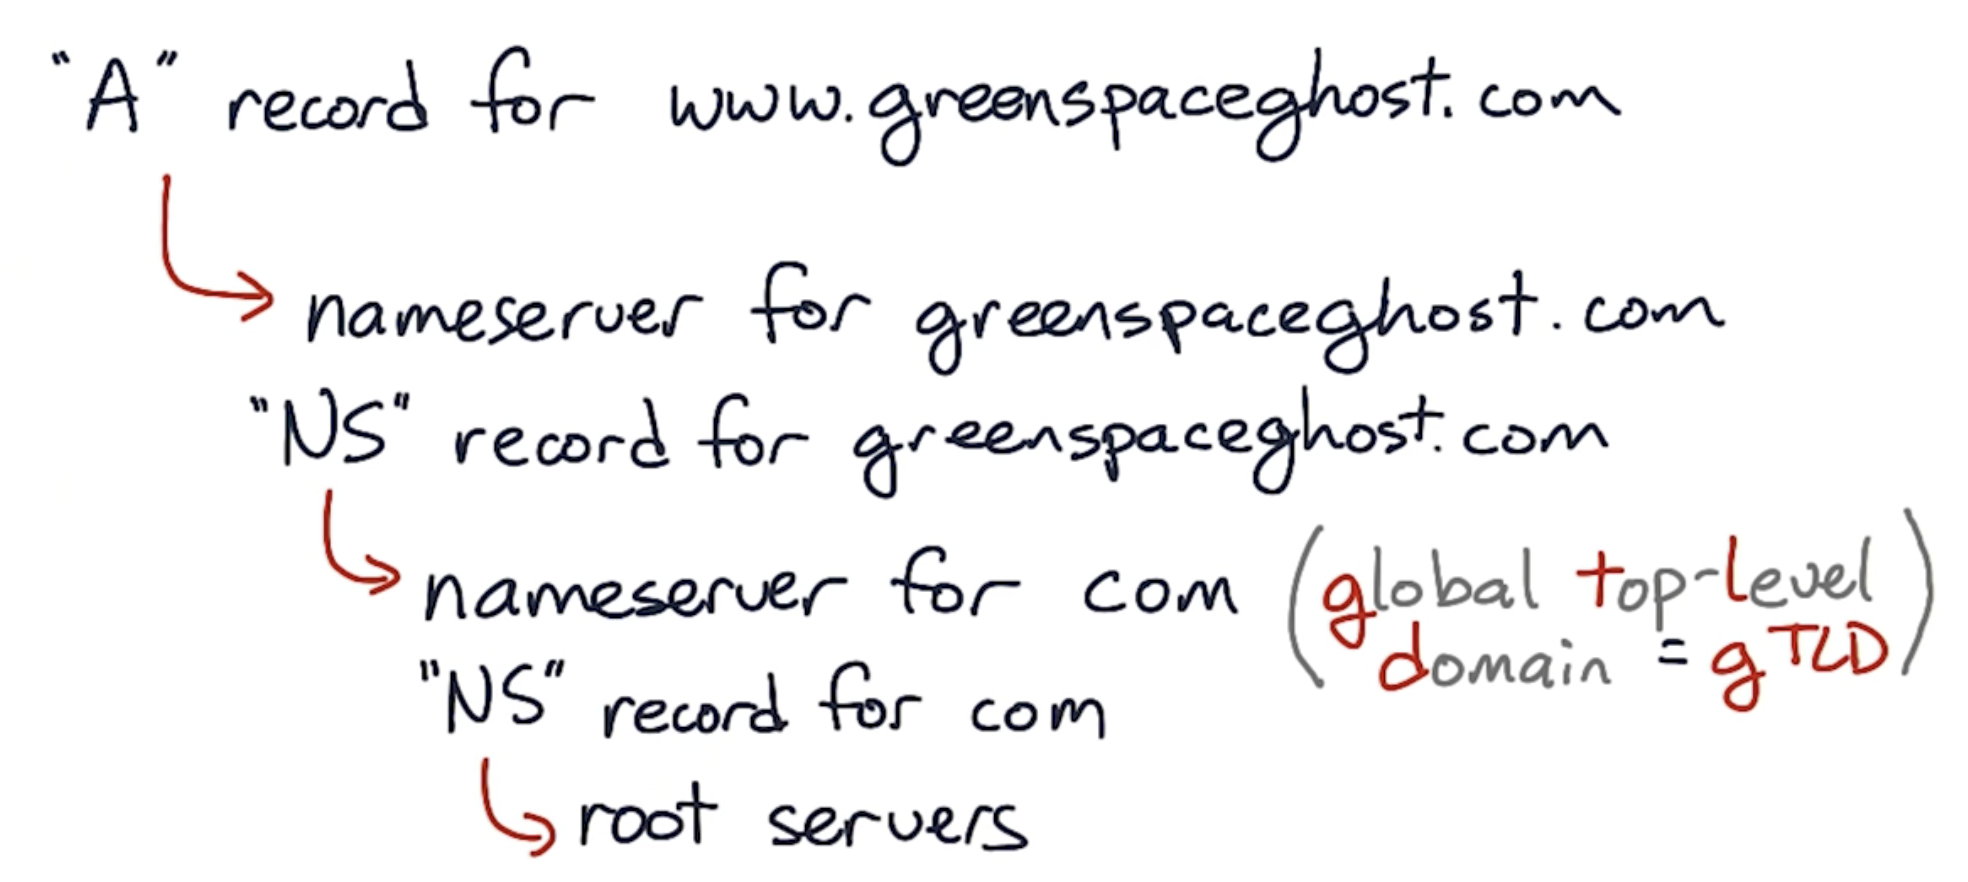 "A" record for www.greenspaceghost.com
nameserver for greenspaceghost.com
"NS" record for greenspaceghost.com
nameserver for com (global top-level
domain = gTLD)
"NS" record for com
root servers